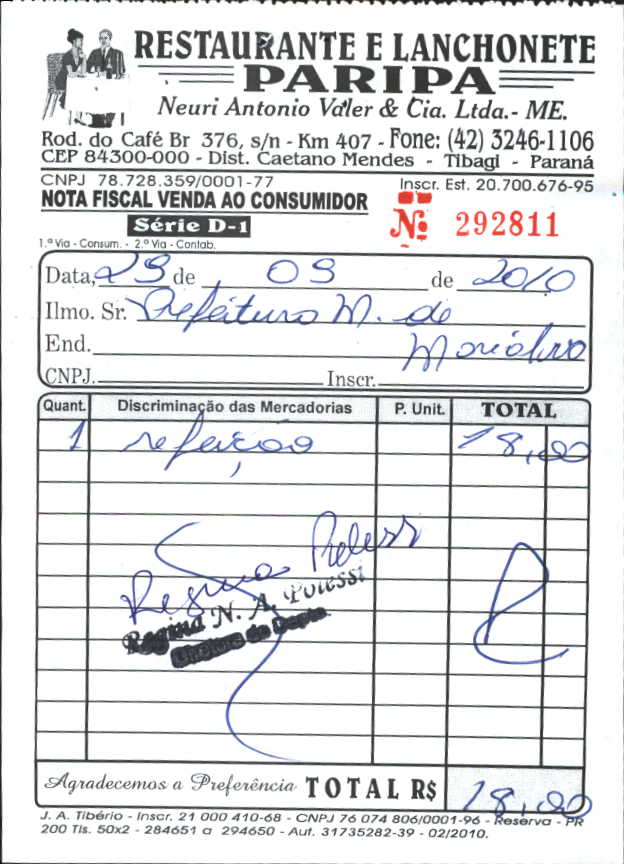 RESTAURANTE E LANCHONETE
PARIPA
Neuri Antonio Valer & Cia. Ltda.- ME.
Rod. do Café Br 376, s/n - Km 407 - Fone: (42) 3246-1106
CEP 84300-000 - Dist. Caetano Mendes - Tibagi - Paraná
CNPJ 78.728.359/0001-77 Inscr. Est. 20.700.676-95
NOTA FISCAL VENDA AO CONSUMIDOR
Série D-1 Nº 292811
1.ª Via - Consum. - 2.ª Via - Contab.
Data, 29 de 09 de 2010
Ilmo. Sr. Prefeitura M. de
End. Marialva
CNPJ. Inscr.
Quant. Discriminação das Mercadorias P. Unit. TOTAL
1 refeição 18,00
Regina
Regina N. A. Polessi
de Depto
Agradecemos a Preferência TOTAL R$ 18,00
J. A. Tibério - Inscr. 21 000 410-68 - CNPJ 76 074 806/0001-96 - Reserva - PR
200 Tls. 50x2 - 284651 a 294650 - Aut. 31735282-39 - 02/2010.